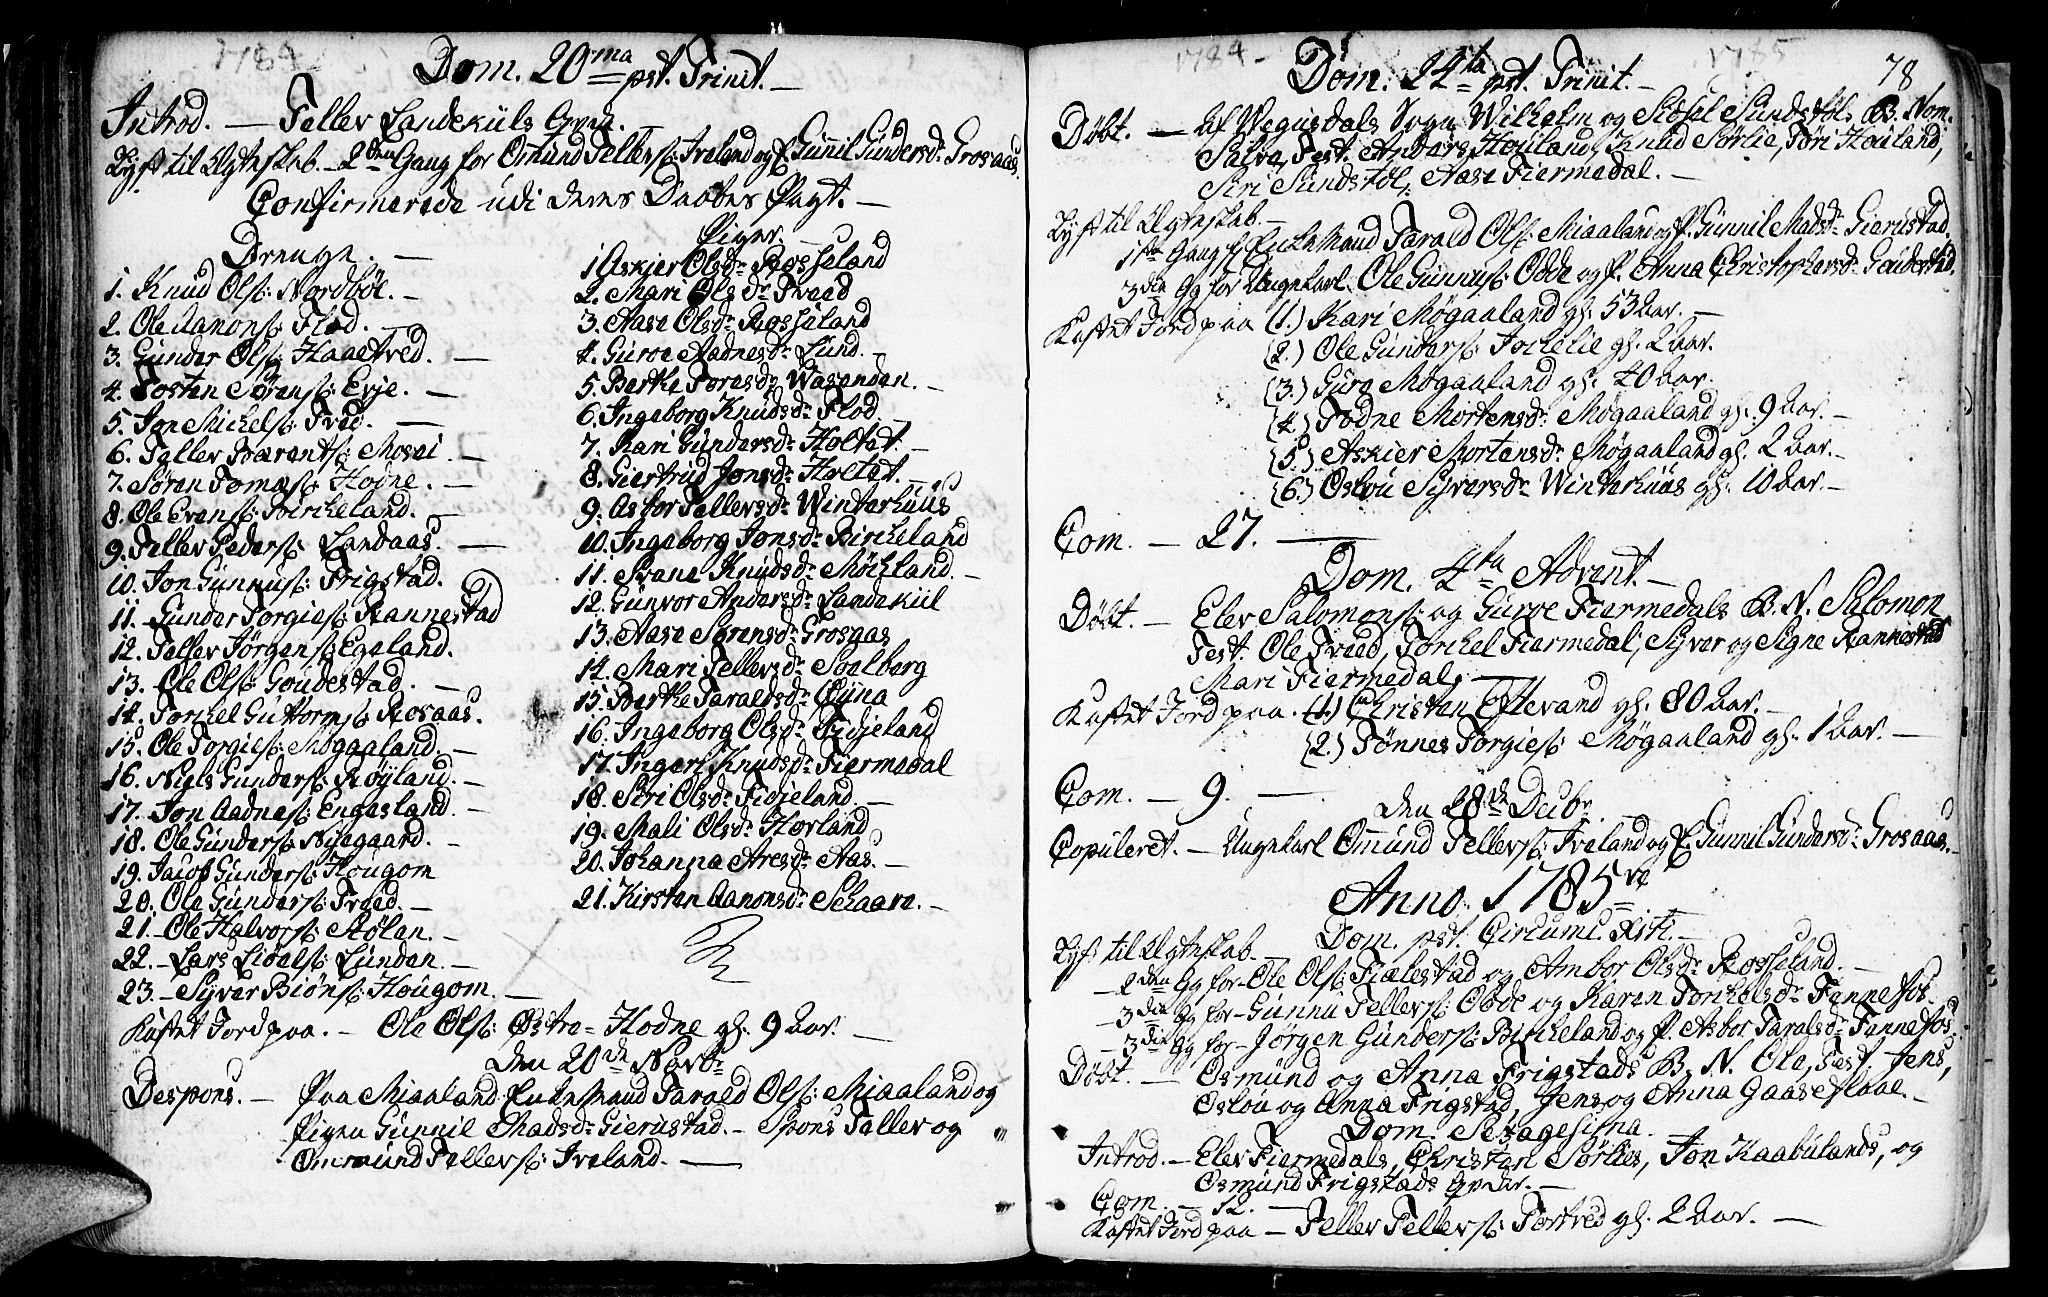 1784
Dom. 20ma pst. Trinit. —
Introd. — Teller Landekiils Qvin. —
Lyst til Egteskab. — 2den Gang for Omund Tellers: Iveland og P. Gunnil Gundersdr. Grosaas.
Confirmerede udi deres Daabes Pagt. —
Drenge. —
1. Knud Ols: Nordbøl. —
2. Ole Aanons: Flod. —
3. Gunder Ols: Haaetved. —
4. Tosten Sørens: Evje. —
5. Jon Michels: Tved. —
6. Teller Berents: Mosei. —
7. Søren Tomæs: Hodne. —
8. Ole Evens: Birkeland. —
9. Teller Peders: Landaas. —
10. Jon Gunnus: Frigstad.
11. Gunder Torgies: Rannestad
12. Teller Jørgens: Egeland.
13. Ole Ols: Goudestad. —
14. Torkel Guttorms: Rosaas.
15. Ole Torgies: Møgaaland. —
16. Niels Gunders: Røyland. —
17. Jon Aadnes: Engesland. —
18. Ole Gunders: Nijegaard. —
19. Jacob Gunders: Hougom
20. Ole Gunders: Tved. —
21. Ole Halvors: Stølen. —
22. Lars Lidels: Lunden. —
23. Syver Biøns: Hougom. —
Piger. —
1. Askier Olsdr. Rosseland
2. Mari Olsdr. Tveed
3. Aase Olsdr. Rosseland
4. Guroe Aadnesdr. Lund. —
5. Berthe Toresdr. Wasenden. —
6. Ingeborg Knudsdr. Flod. —
7. Kari Gundersdr. Holtet. —
8. Giertrud Jonsdr. Holtet. —
9. Asbor Tellersdr. Winterhuus
10. Ingeborg Jonsdr. Birkeland
11. Svane Knudsdr. Møchland. —
12. Gunvor Andersdr. Landekiil
13. Aase Sørensdr. Grosaas
14. Mari Tellersdr. Soelberg
15. Berthe Taraldsdr. Øiina
16. Ingeborg Olsdr. Fidjeland
17. Ingerl Knudsdr. Fiermedal
18. Siri Olsdr. Fidjeland. —
19. Mali Olsdr. Horland
20. Johanna Aresdr. Aas. —
21. Kirsten Aanonsdr. Skaare. —
Kastet Jord paa. — Ole Ols: Østre-Hodne gl. 9 Aar. —
Den 20de Novbr.
Despons. — Paa Miaaland Enkemand Tarald Ols: Miaaland og
Pigen Gunnil Madsdr. Gierustad. — Spons: Teller og
Ommund Tellers: Iveland. —
1784 - 1785
78
Dom. 24ta pst. Trinit. —
Døbt. — Af Wegusdals Sogn Wilhelm og Sidsel Sundstøl, B. Nom.
Salve, Test. Anders Houiland, Knud Sørlie, Tøri Houland,
Siri Sundstøl, Aase Fiermedal. —
Lyst til Egteskab. —
1ste Gang f. Enkemand Tarald Ols: Miaaland og P. Gunnil Madsdr. Gierustad.
3die Gg for Ungekarl Ole Gunnus: Odde og P. Anna Christophersdr. Goudestad.
Kastet Jord paa (1.) Kari Møgaaland gl. 53 Aar. —
(2.) Ole Gunders: Jorkelie gl. 2 Aar.
(3.) Guro Møgaaland gl. 40 aar.
(4.) Todne Mortensdr. Møgaaland gl. 9 Aar. —
(5.) Askier Mortensdr. Møgaaland gl. 2 Aar. —
(6.) Oslou Syversdr. Winterhuus gl. 10 Aar. —
Com. — 27. —
Dom. 4ta Advent. —
Døbt. — Elev Salomons: og Gurve Fiermedals B. N. Salomon
Test. Ole Tveed, Torkel Fiermedal, Syver og Signe Rannestad
Mari Fiermedal. —
Kastet Jord paa. (1.) Christen Eftevand gl. 80 Aar. —
(2.) Tønnes Torgies: Møgaaland gl. 1 Aar. —
Com. — 9. —
Den 28de Decbr.
Copuleret. — Ungekarl Omund Tellers: Iveland og P. Gunnil Gundersdr. Grosaas. —
Anno 1785ve
Dom. pst. Circumc. Xsti. —
Lyst til Egteskab. —
— 2den Gg for — Ole Ols: Fialestad og Ambor Olsdr. Rosseland. —
— 3die Gg for — Gunnu Tellers: Odde og Karen Torkelsdr. Tannefos.
— 3die Gg for — Jørgen Gunders: Birkeland og P. Asbor Taralsdr. Tannefos.
Døbt. — Osmund og Anna Frigstads B. N. Ole, Test. Jens,
Oslou og Anna Frigstad, Jens og Anna Gaaseflaae. —
Dom. Sexagesima.
Introd. — Elev Fiermedals, Christen Sørlies, Jon Kaabulands, og
Osmund Frigstads Qvder. —
Com. — 12. —
Kastet Jord paa — Teller Tellers: Tortved gl. 2 Aar. —